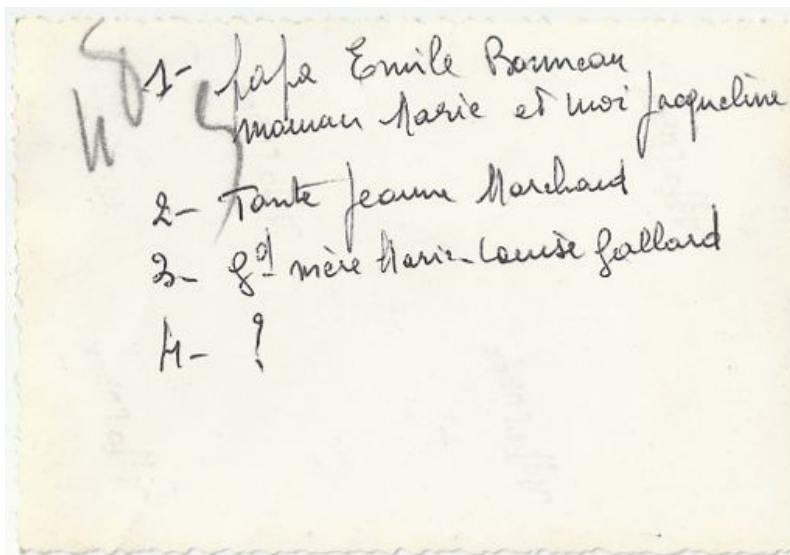 1- papa Emile Bonneau
maman Marie et moi Jacqueline
2- Tante Jeanne Marchand
3- Gd mère Marie-Louise Gallard
4- ?